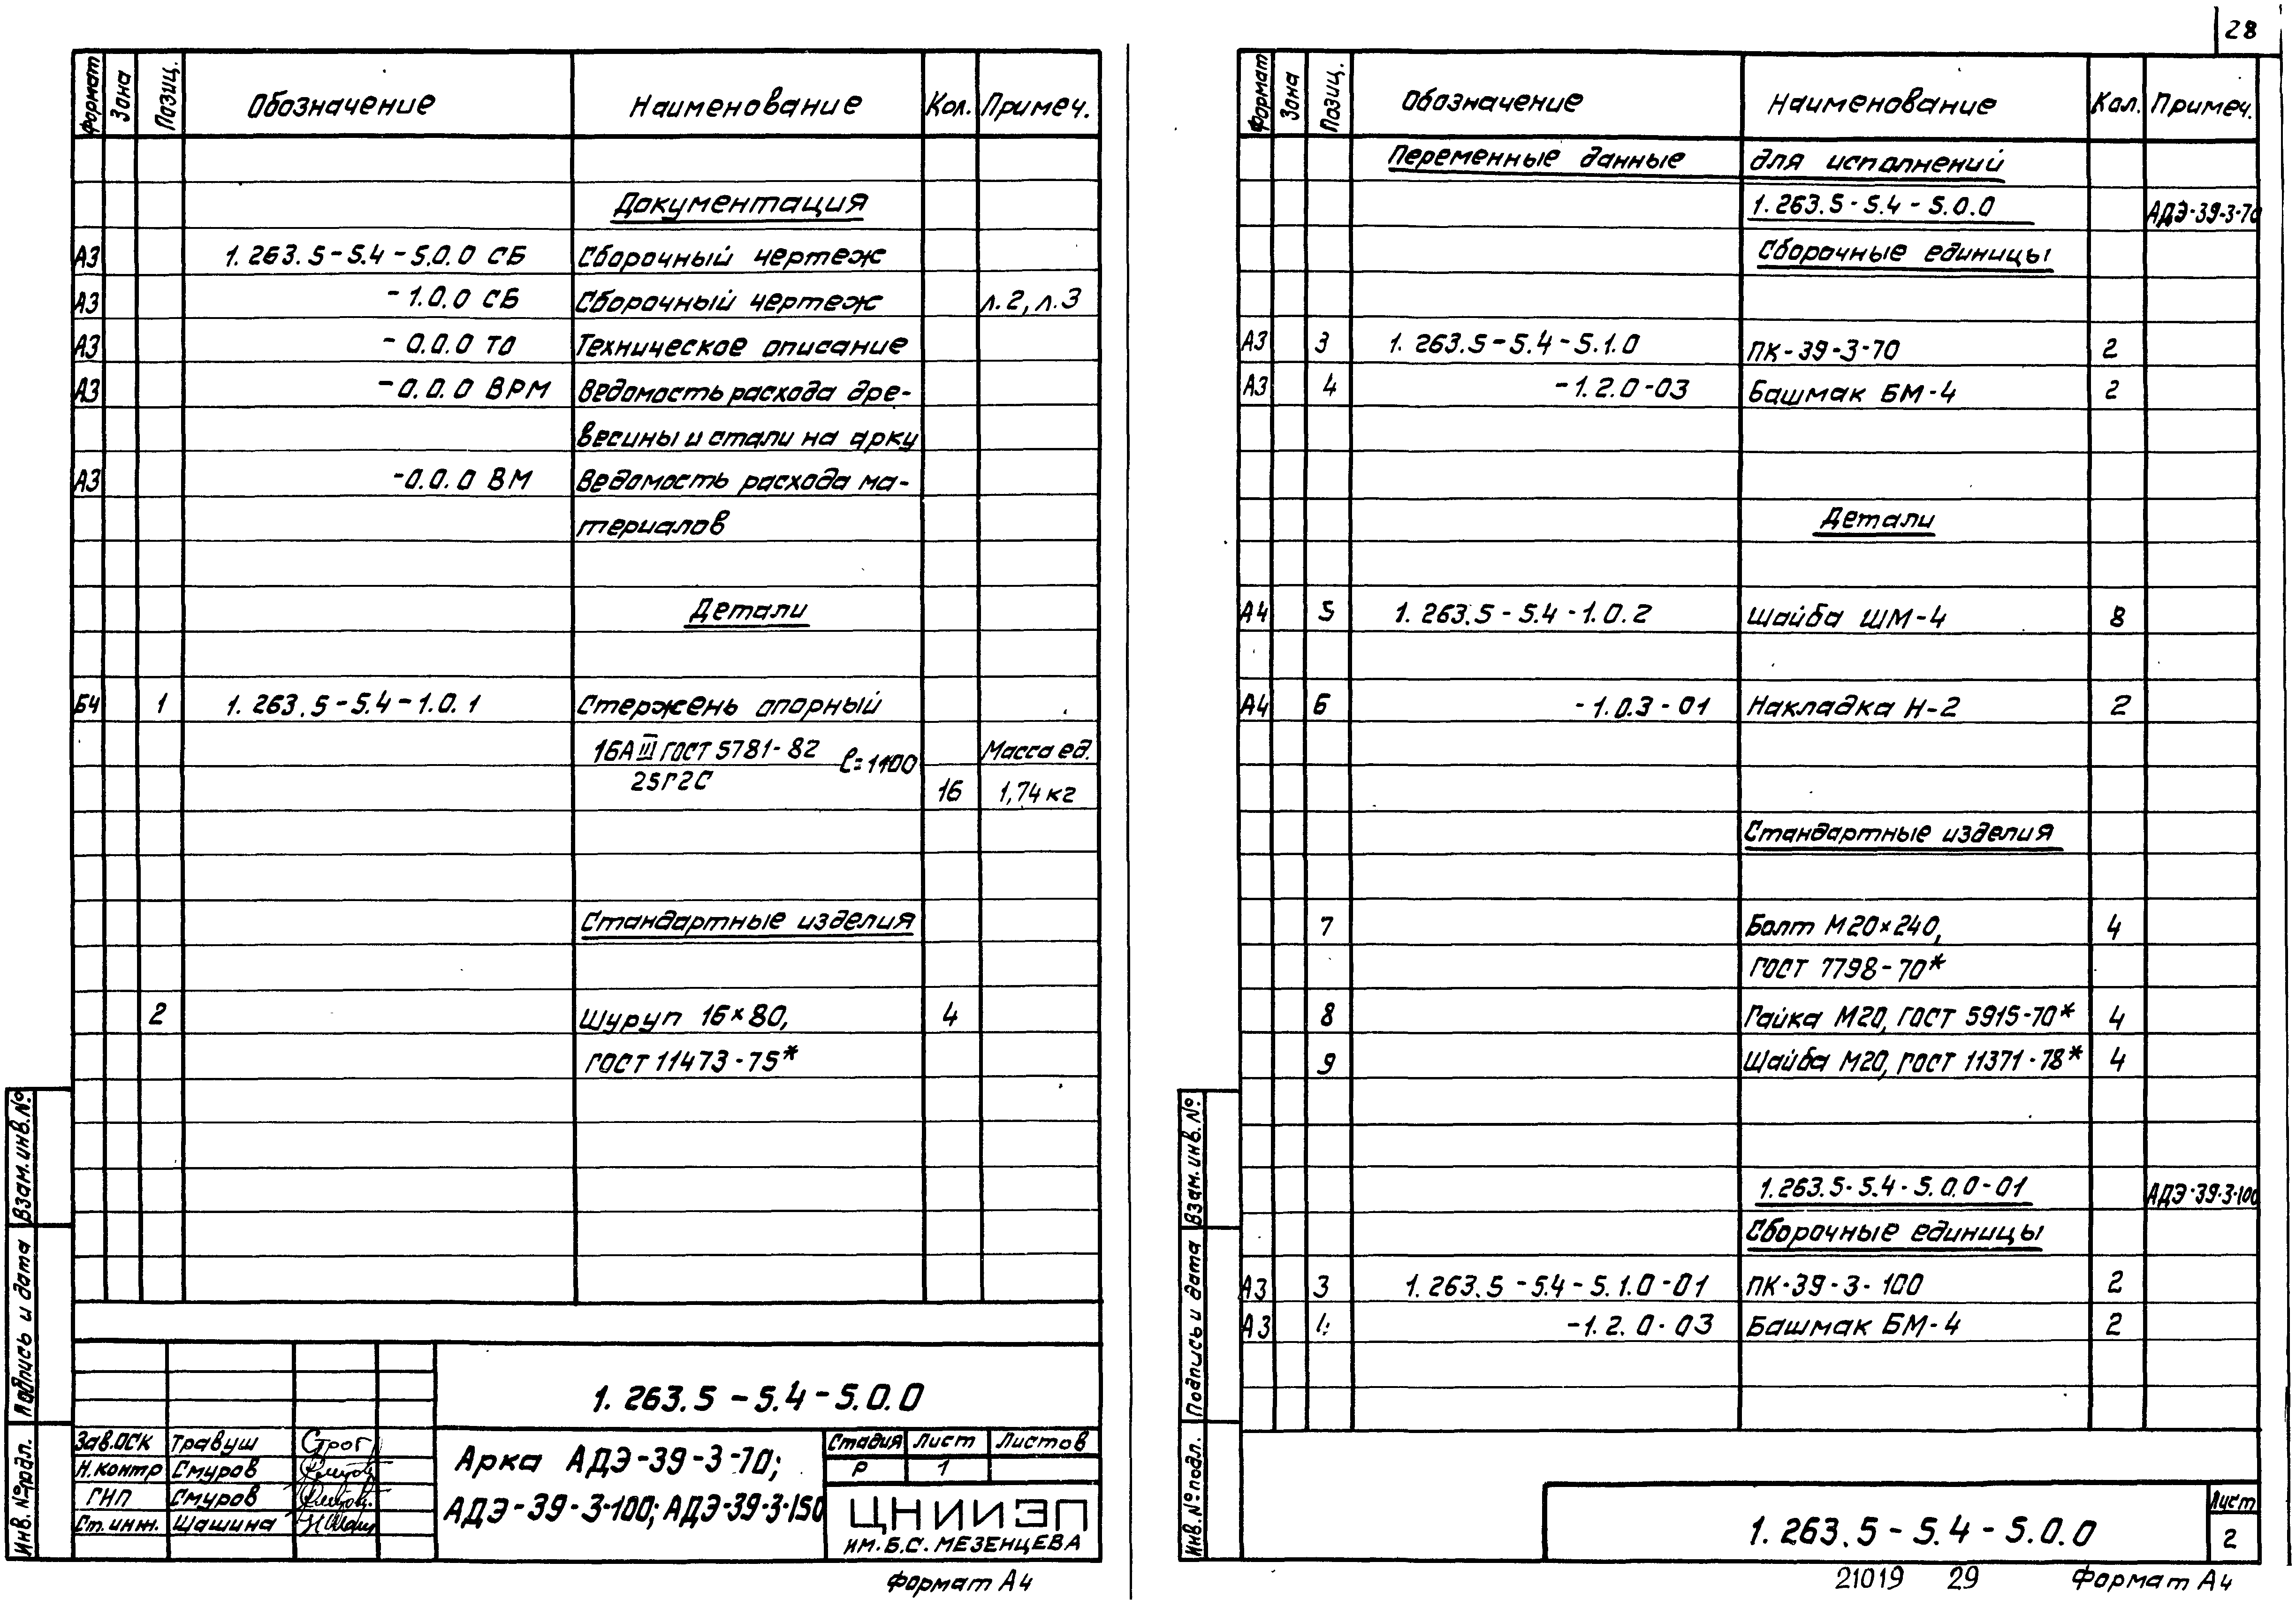 28
Формат Зона Позиц. Обозначение Наименование Кол. Примеч.
Документация
А3 1.263.5-5.4-5.0.0 СБ Сборочный чертеж
А3 -1.0.0 СБ Сборочный чертеж л.2, л.3
А3 -0.0.0 ТО Техническое описание
А3 -0.0.0 ВРМ Ведомость расхода дре-
весины и стали на арку
А3 -0.0.0 ВМ Ведомость расхода ма-
териалов
Детали
Б4 1 1.263.5-5.4-1.0.1 Стержень опорный
16АIII ГОСТ 5781-82 ℓ=1100 Масса ед.
25Г2С 16 1,74 кг
Стандартные изделия
2 Шуруп 16×80, 4
ГОСТ 11473-75*
Взам. инв. №
Подпись и дата
Инв. № подл.
1.263.5-5.4-5.0.0
Зав. ОСК Травуш
Н. контр Смуров
ГНП Смуров
Ст. инж. Шашина
Арка АДЭ-39-3-70;
АДЭ-39-3-100; АДЭ-39-3-150
Стадия Лист Листов
Р 1
ЦНИИЭП
ИМ. Б.С. МЕЗЕНЦЕВА
Формат А4
Формат Зона Позиц. Обозначение Наименование Кол. Примеч.
Переменные данные для исполнений
1.263.5-5.4-5.0.0 АДЭ-39-3-70
Сборочные единицы
А3 3 1.263.5-5.4-5.1.0 ПК-39-3-70 2
А3 4 -1.2.0-03 Башмак БМ-4 2
Детали
А4 5 1.263.5-5.4-1.0.2 Шайба ШМ-4 8
А4 6 -1.0.3-01 Накладка Н-2 2
Стандартные изделия
7 Болт М20×240, 4
ГОСТ 7798-70*
8 Гайка М20, ГОСТ 5915-70* 4
9 Шайба М20, ГОСТ 11371-78* 4
1.263.5-5.4-5.0.0-01 АДЭ-39-3-100
Сборочные единицы
А3 3 1.263.5-5.4-5.1.0-01 ПК-39-3-100 2
А3 4 -1.2.0-03 Башмак БМ-4 2
Взам. инв. №
Подпись и дата
Инв. № подл.
1.263.5-5.4-5.0.0
Лист
2
21019 29 Формат А4